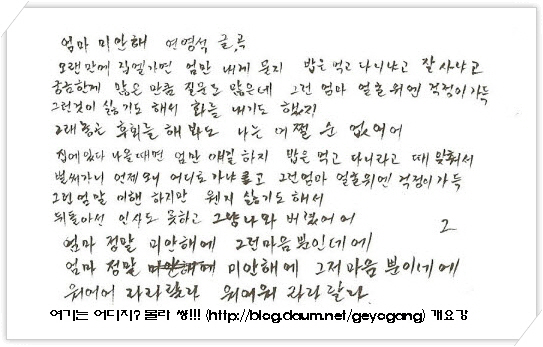 엄마 미안해 연영석 글,곡
오랜만에 집엘가면 엄만 내게 묻지 밥은 먹고 다니냐고 잘 사냐고
궁금한게 많은 만큼 질문도 많은데 그런 엄마 얼굴위엔 걱정이 가득
그런것이 싫기도 해서 화를 내기도 했지
그래놓곤 후회를 해 봐도 나는 어쩔 순 없었어
집에있다 나올때면 엄만 얘길 하지 밥은 먹고 다니라고 때 맞춰서
벌써가니 언제 오니 어디로 가냐고 그런엄마 얼굴위엔 걱정이 가득
그런 엄말 이핸 하지만 웬지 싫기도 해서
뒤돌아선 인사도 못하고 그냥 나와 버렸어 어
2
엄마 정말 미안해에 그런마음 뿐인데에
엄마 정말 미안해에 그저 마음 뿐이네에
워어어 라라랄라 워어워 라라랄라
여기는 어디지? 몰라 쌍!!! (http://blog.daum.net/geyogang) 개요강